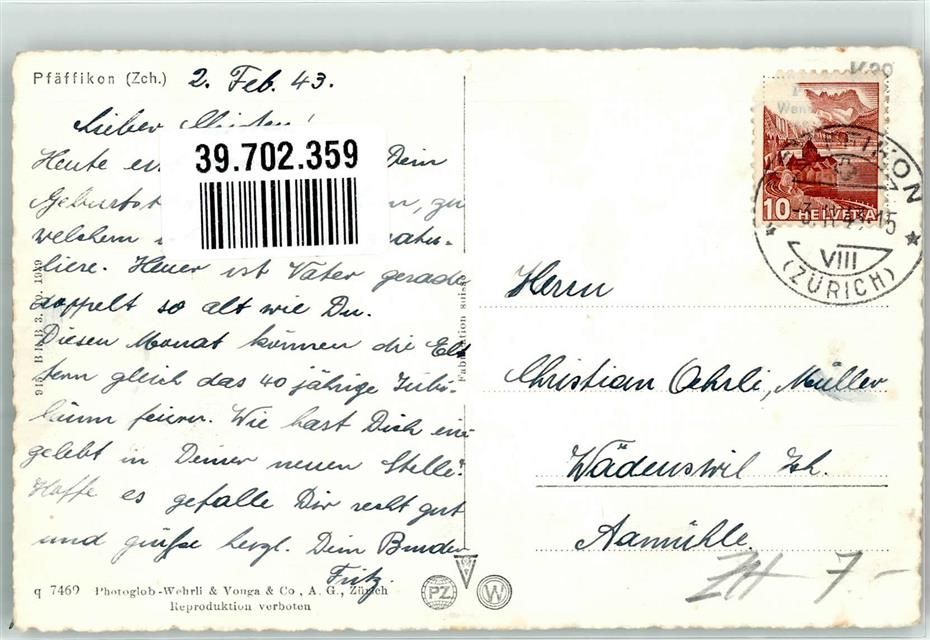 Pfäffikon (Zch.) 2. Feb. 43.
Lieber
Heute Dein
39.702.359
Geburtst zu
welchem
liere. Heuer ist Vater gerade
doppelt so alt wie Du.
Diesen Monat können die El-
tern gleich das 40 jährige Jubi-
läum feiern. Wie hast Dich ein-
gelebt in Deiner neuen Stelle?
Hoffe es gefalle Dir recht gut
und grüsse herzl. Dein Bruder
Fritz.
q 7469 Photoglob-Wehrli & Vouga & Co, A. G., Zürich
Reproduktion verboten
Fabrication suisse
PZ
W
10 HELVETIA
VIII
(ZÜRICH)
Herrn
Christian Oehrli, Müller
Wädenswil Zh.
Aamühle.
ZH 7.-